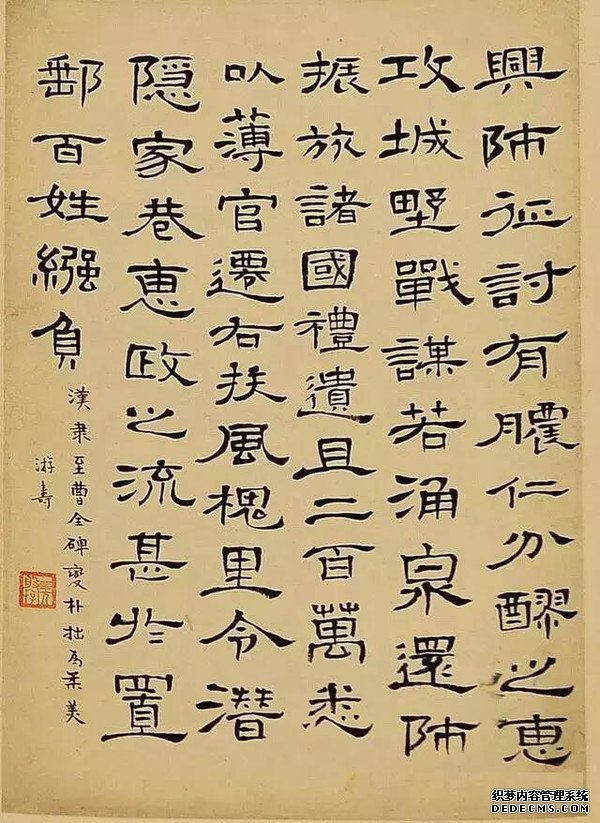 興師征討有膿仁分醪之惠
攻城墅戰謀若涌泉還師
振旅諸國禮遺且二百萬悉
以薄官遷右扶風槐里令潛
隐家巷惠政之流甚於置
郵百姓繦負
漢隶至曹全碑變朴拙為柔美
游壽
织梦内容管理系统
DEDECMS.COM